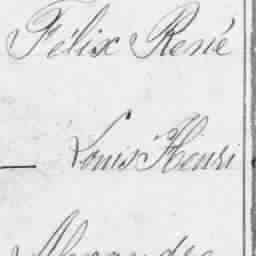 Félix René
— Louis Henri
Alexandre